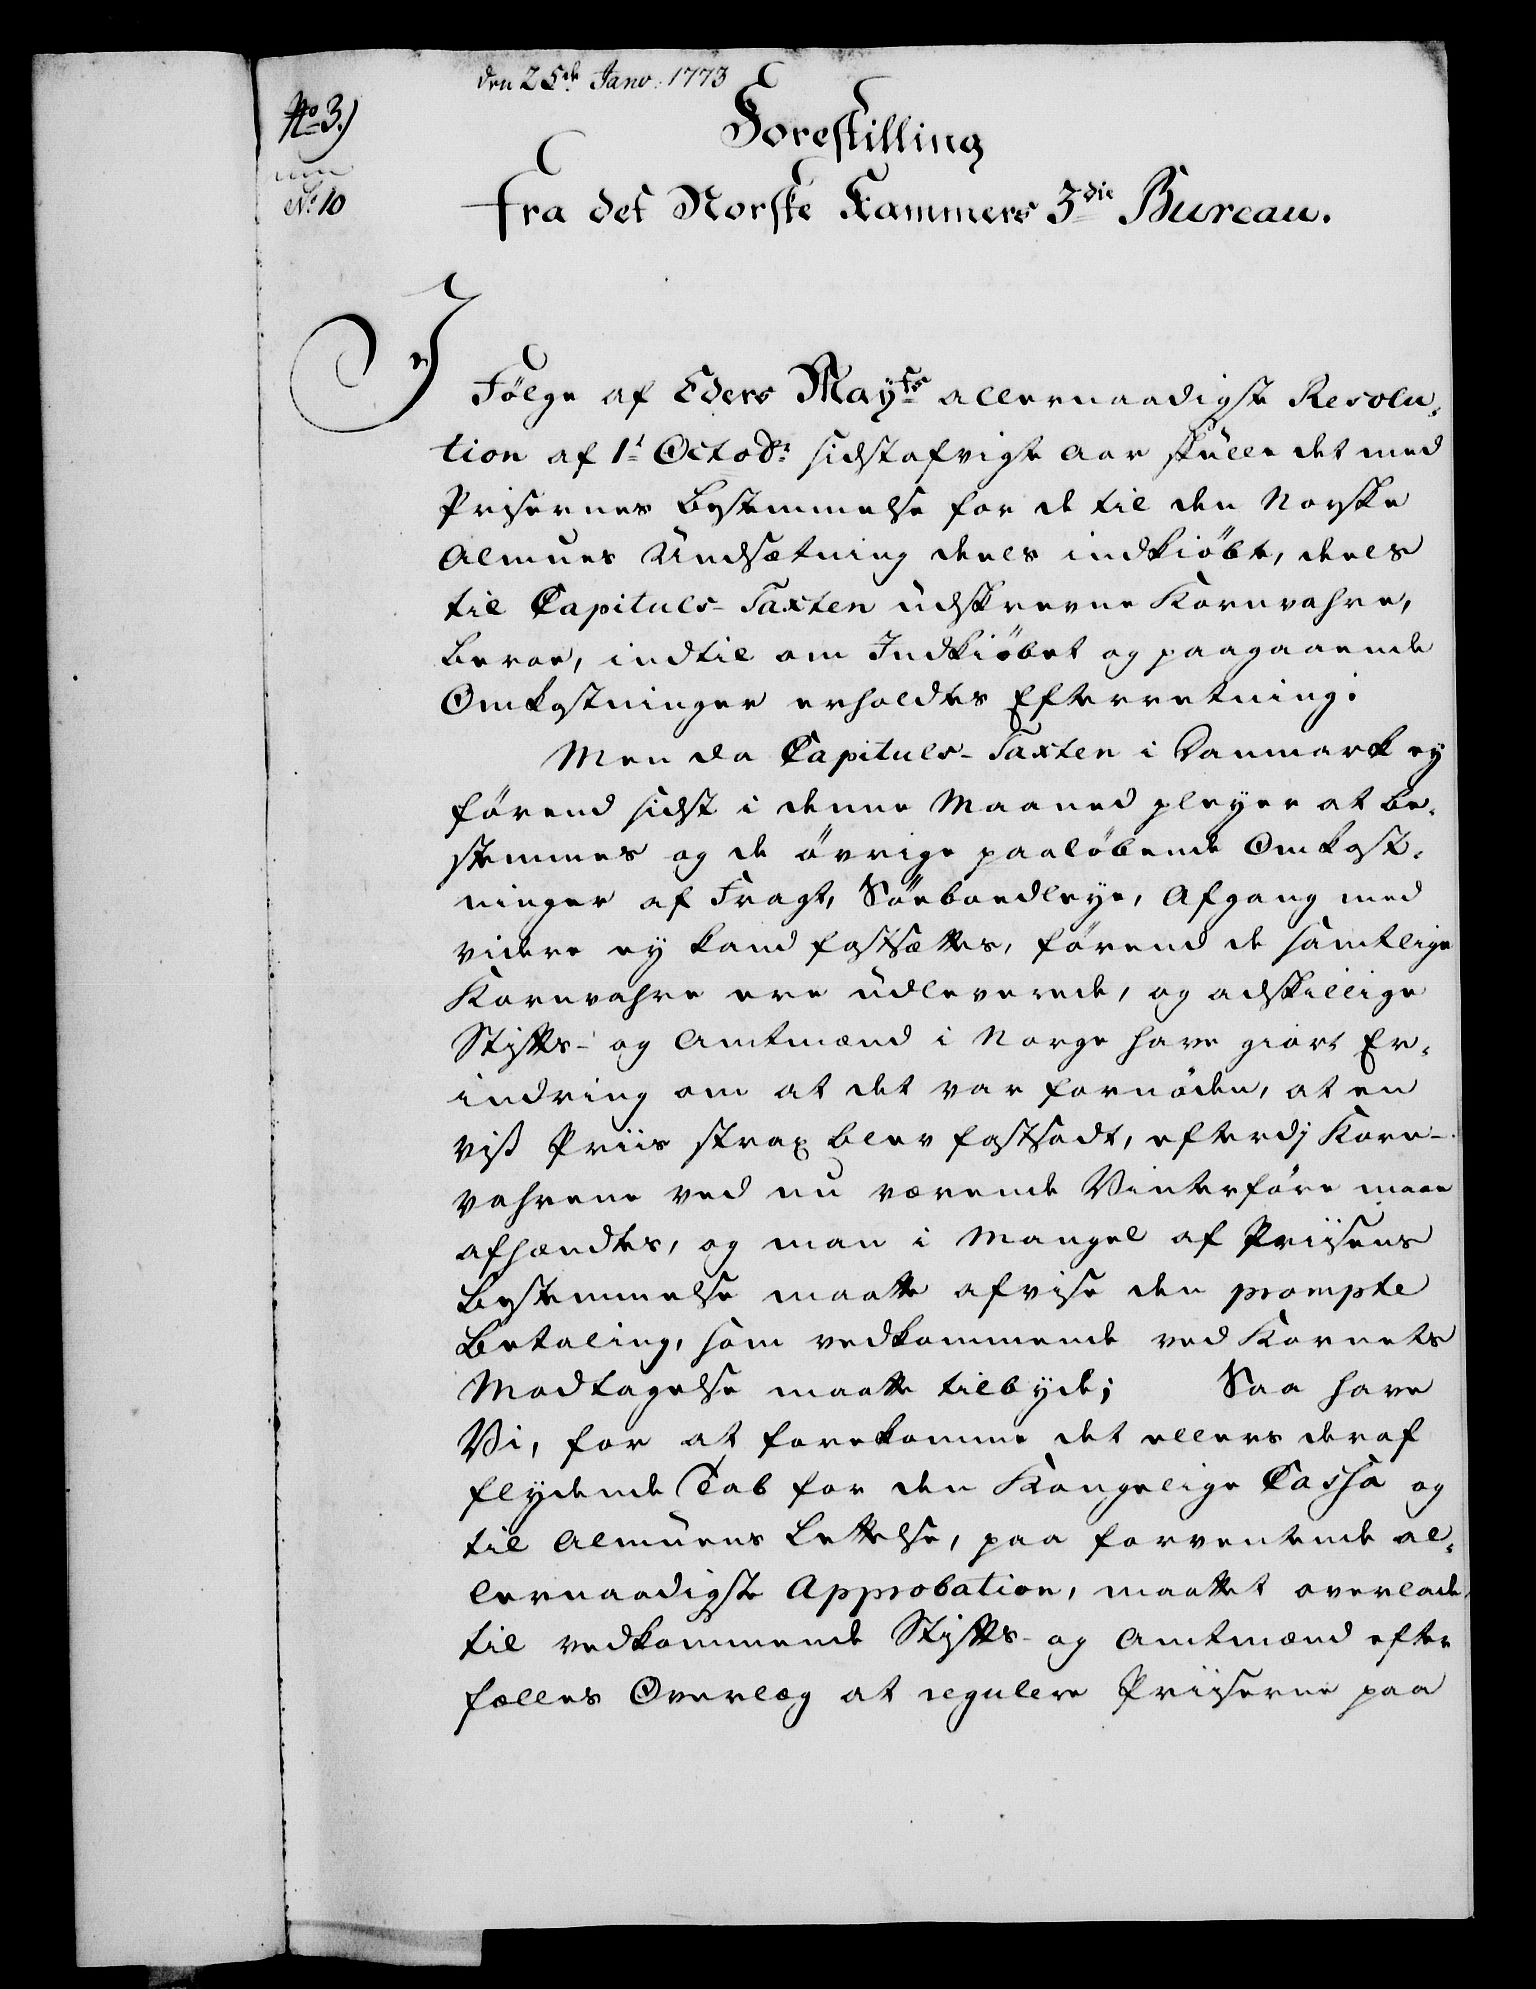 den 25de Janv: 1773
No 3.)
No 10
Forestilling
fra det Norske Kammers 3die Bureau.
I
Følge af Eders Mayts allernaadigste Resolu,
tion af 1t Octobr: sidstafvigte Aar skulle det med
Prisernes Bestemmelse for de til den Norske
Almues Undsætning deels indkiöbte, deels
til Capituls-Taxten udskrevne Kornvahre,
beroe, indtil om Indkiöbet og paagaaende
Omkostninger erholdtes Efterretning:
Men da Capituls-Taxten i Danmark ey
förend sidst i denne Maaned pleyer at be,
stemmes og de övrige paalöbende Omkost,
ninger af Fragt, Söeboedleye, Afgang med
videre ey kand fastsættes, förend de samtlige
Kornvahre ere udleverede, og adskillige
Stifts- og Amtmænd i Norge have giort Er,
indring om at det var fornöden, at en
viß Priis strax blev fastsadt, efterdj Korn-
vahrene ved nu værende Vinterföre maae
afhændtes, og man i Mangel af Priisens
Bestemmelse maatte afvise den prompte
Betaling, som vedkommende ved Kornets
Modtagelse maatte tilbyde; Saa have
Vi, for at forekomme det ellers deraf
flydende Tab for den Kongelige Cassa og
til Almuens Lettelse, paa forventende al,
lernaadigste Approbation, maattet overlade
til vedkommende Stifts- og Amtmænd efter
fælles Overlæg at regulere Priiserne paa